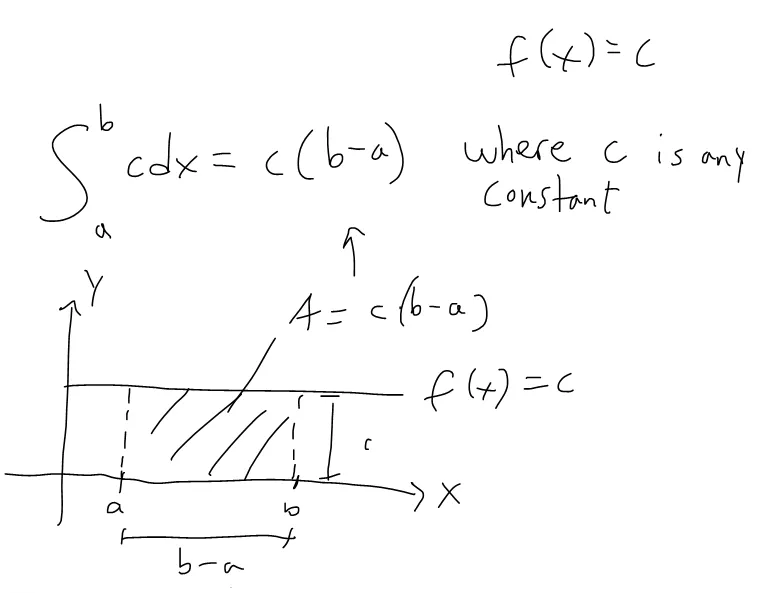 f(x) = c
∫_a^b cdx = c(b-a) where c is any
constant
A = c(b-a)
Y
f(x) = c
c
X
a b
b-a